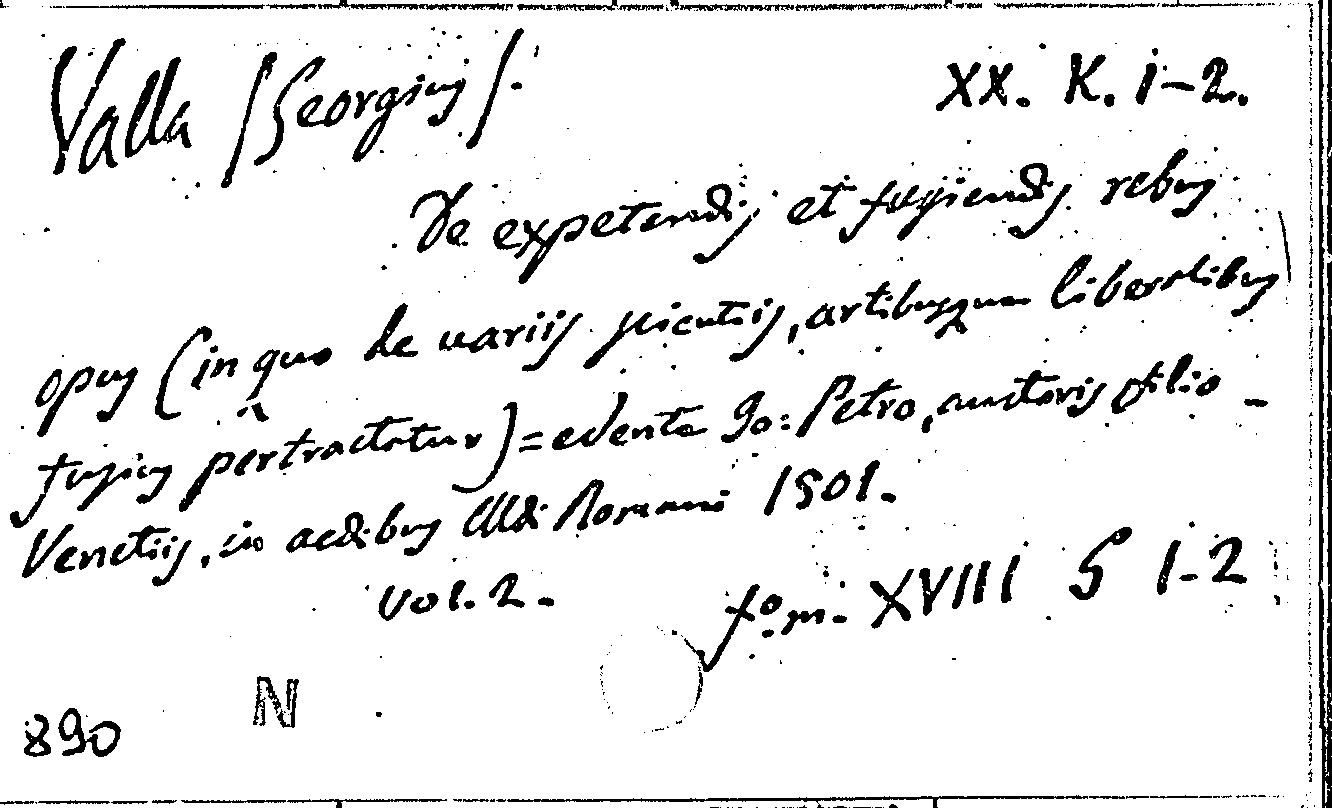 Valla /Georgius/.
XX. K. 1-2.
De expetendis et fugiendis rebus
opus (in quo de uariis scientiis, artibusque liberalibus
fusius pertractatur) = edente Jo: Petro, auctoris filio -
Venetiis, in aedibus Aldi Romani 1501.
vol. 2.
fo. m. XVIII S 1-2
N
890